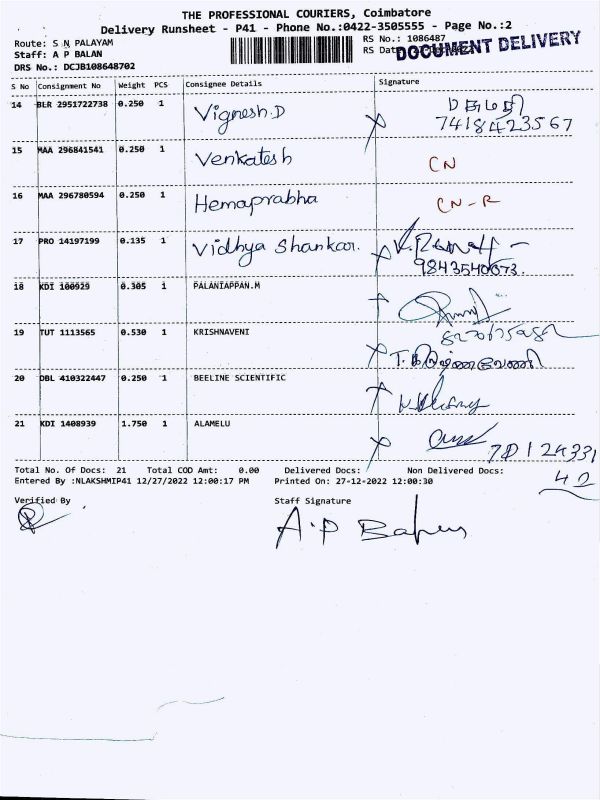 THE PROFESSIONAL COURIERS, Coimbatore
Delivery Runsheet - P41 - Phone No.:0422-3505555 - Page No.:2
Route: S N PALAYAM
RS No.: 1086487
Staff: A P BALAN
RS Dat
DOCUMENT DELIVERY
DRS No.: DCJB108648702
S No Consignment No Weight PCS Consignee Details Signature
14 BLR 2951722738 0.250 1 Vignesh.D
7418423567
15 MAA 296841541 0.250 1 Venkatesh CN
16 MAA 296780594 0.250 1 Hemaprabha CN-R
17 PRO 14197199 0.135 1 Vidhya Shankar.
9843540673.
18 KDI 100929 0.305 1 PALANIAPPAN.M
19 TUT 1113565 0.530 1 KRISHNAVENI
T. கிருஷ்ணவேணி
20 DBL 410322447 0.250 1 BEELINE SCIENTIFIC
21 KDI 1408939 1.750 1 ALAMELU
Total No. Of Docs: 21 Total COD Amt: 0.00 Delivered Docs: Non Delivered Docs:
Entered By :NLAKSHMIP41 12/27/2022 12:00:17 PM Printed On: 27-12-2022 12:00:30
42
Verified By Staff Signature
A.P